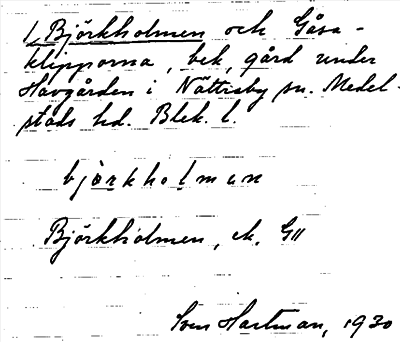 1, Björkholmen och Gåsa-
klipporna, bek, gård under
Havgården i Nättraby sn. Medel-
stads hd. Blek. l.
björkholmen
Björkholmen, ek. G11
Sven Hartman, 1930